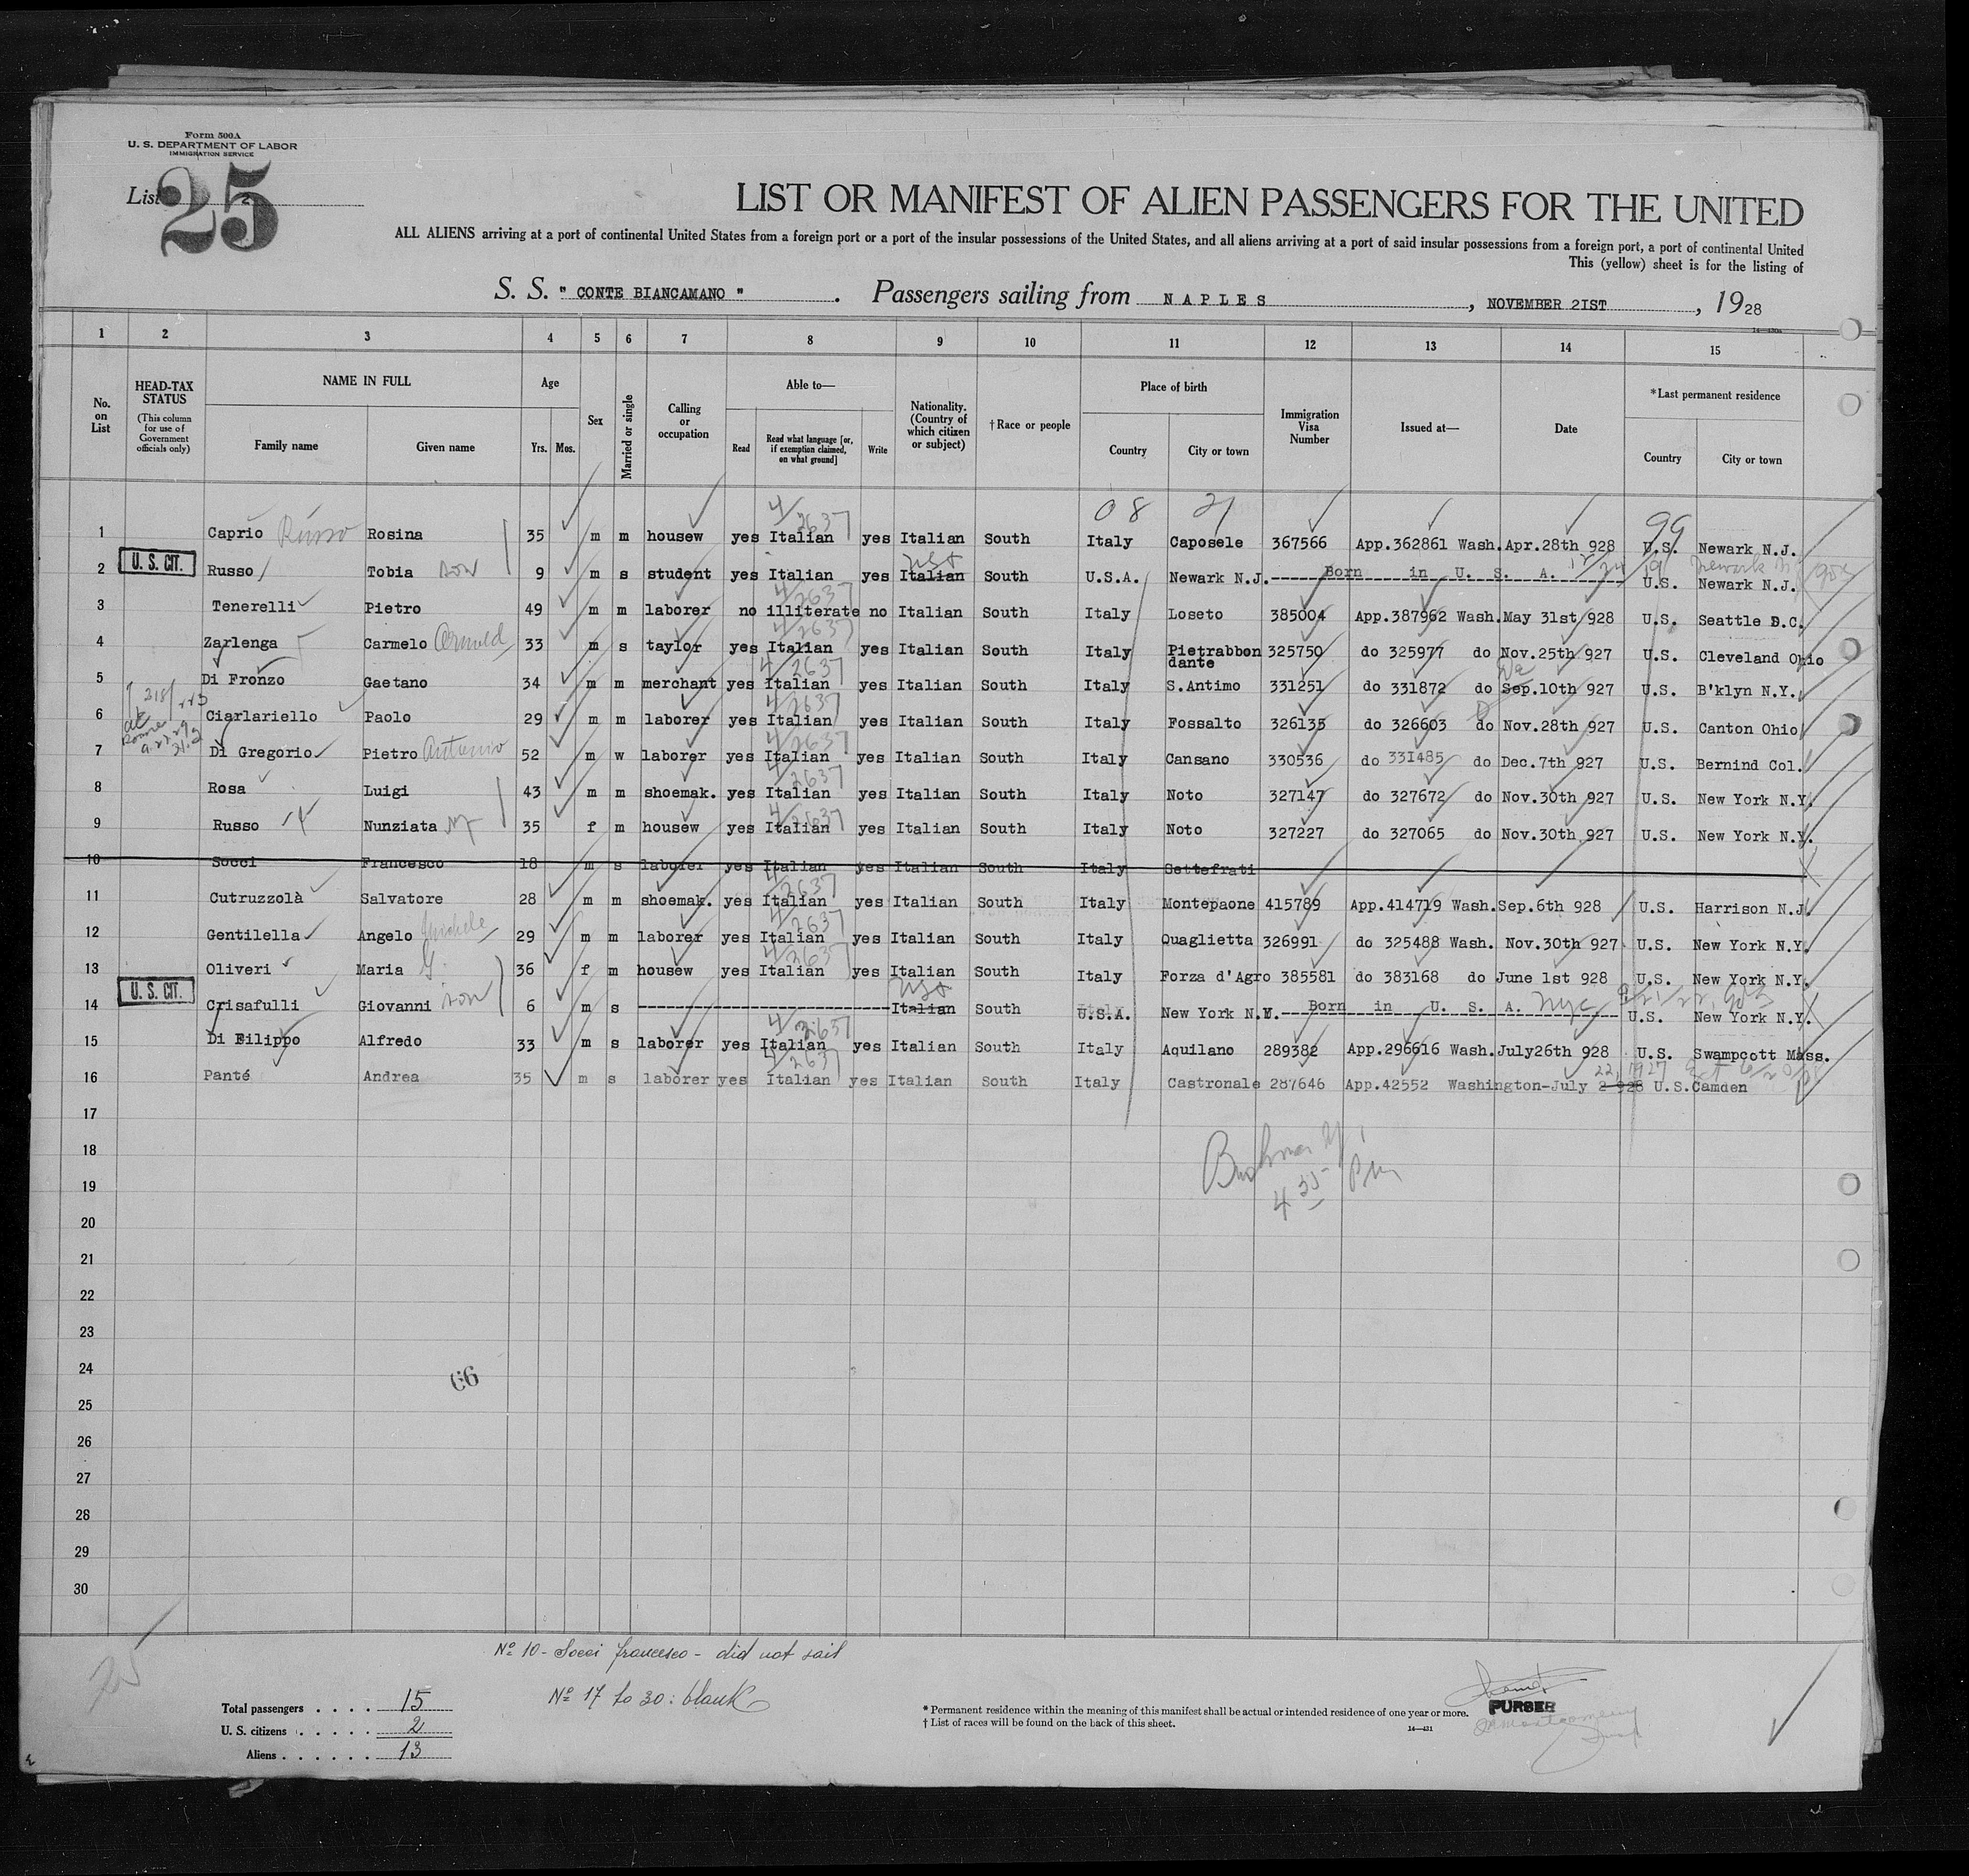 Form 500A
U. S. DEPARTMENT OF LABOR
IMMIGRATION SERVICE
List 2
25
LIST OR MANIFEST OF ALIEN PASSENGERS FOR THE UNITED
ALL ALIENS arriving at a port of continental United States from a foreign port or a port of the insular possessions of the United States, and all aliens arriving at a port of said insular possessions from a foreign port, a port of continental United
This (yellow) sheet is for the listing of
S. S. " CONTE BIANCAMANO " . Passengers sailing from NAPLES , NOVEMBER 2IST , 1928
14—430a
1 2 3 4 5 6 7 8 9 10 11 12 13 14 15
No. on List
HEAD-TAX STATUS (This column for use of Government officials only)
NAME IN FULL Family name Given name
Age Yrs. Mos.
Sex
Married or single
Calling or occupation
Able to— Read Read what language [or, if exemption claimed, on what ground] Write
Nationality. (Country of which citizen or subject)
†Race or people
Place of birth Country City or town
Immigration Visa Number
Issued at—
Date
*Last permanent residence Country City or town
08 21 99
1 Caprio Russo Rosina 35 m m housew yes Italian 4/2637 yes Italian South Italy Caposele 367566 App.362861 Wash. Apr.28th 928 U.S. Newark N.J.
2 U. S. CIT. Russo Tobia son 9 m s student yes Italian yes Italian USA South U.S.A. Newark N.J. Born in U. S. A. U.S. Newark N.J.
3 Tenerelli Pietro 49 m m laborer no illiterate 4/2637 no Italian South Italy Loseto 385004 App.387962 Wash. May 31st 928 U.S. Seattle D.C.
4 Zarlenga Carmelo 33 m s taylor yes Italian 4/2637 yes Italian South Italy Pietrabbondante 325750 do 325977 do Nov.25th 927 U.S. Cleveland Ohio
5 Di Fronzo Gaetano 34 m m merchant yes Italian 4/2637 yes Italian South Italy S.Antimo 331251 do 331872 do Sep.10th 927 U.S. B'klyn N.Y.
6 Ciarlariello Paolo 29 m m laborer yes Italian 4/2637 yes Italian South Italy Fossalto 326135 do 326603 do Nov.28th 927 U.S. Canton Ohio
7 Di Gregorio Pietro Antonio 52 m w laborer yes Italian 4/2637 yes Italian South Italy Cansano 330536 do 331485 do Dec.7th 927 U.S. Bernind Col.
8 Rosa Luigi 43 m m shoemak. yes Italian 4/2637 yes Italian South Italy Noto 327147 do 327672 do Nov.30th 927 U.S. New York N.Y.
9 Russo Nunziata 35 f m housew yes Italian 4/2637 yes Italian South Italy Noto 327227 do 327065 do Nov.30th 927 U.S. New York N.Y.
10 Socci Francesco 18 m s laborer yes Italian yes Italian South Italy Settefrati
11 Cutruzzolà Salvatore 28 m m shoemak. yes Italian 4/2637 yes Italian South Italy Montepaone 415789 App.414719 Wash. Sep.6th 928 U.S. Harrison N.J.
12 Gentilella Angelo Michele 29 m m laborer yes Italian 4/2637 yes Italian South Italy Quaglietta 326991 do 325488 Wash. Nov.30th 927 U.S. New York N.Y.
13 Oliveri Maria G. 36 f m housew yes Italian 4/2637 yes Italian South Italy Forza d'Agro 385581 do 383168 do June 1st 928 U.S. New York N.Y.
14 U. S. CIT. Crisafulli Giovanni son 6 m s Italian USA South U.S.A. New York N.Y. Born in U. S. A. NYC U.S. New York N.Y.
15 Di Filippo Alfredo 33 m s laborer yes Italian 4/2637 yes Italian South Italy Aquilano 289382 App.296616 Wash. July26th 928 U.S. Swampcott Mass.
16 Panté Andrea 35 m s laborer yes Italian 4/2637 yes Italian South Italy Castronale 287646 App.42552 Washington-July 2 928 22, 1927 U.S. Camden
17
18
19
20
21
22
23
24
25
26
27
28
29
30
4 35 Pm
66
Nº 10 - Socci francesco - did not sail
Nº 17 to 30: blank
25
Total passengers . . . . 15
U. S. citizens . . . . . 2
Aliens . . . . . . 13
* Permanent residence within the meaning of this manifest shall be actual or intended residence of one year or more.
† List of races will be found on the back of this sheet.
14—431
PURSER